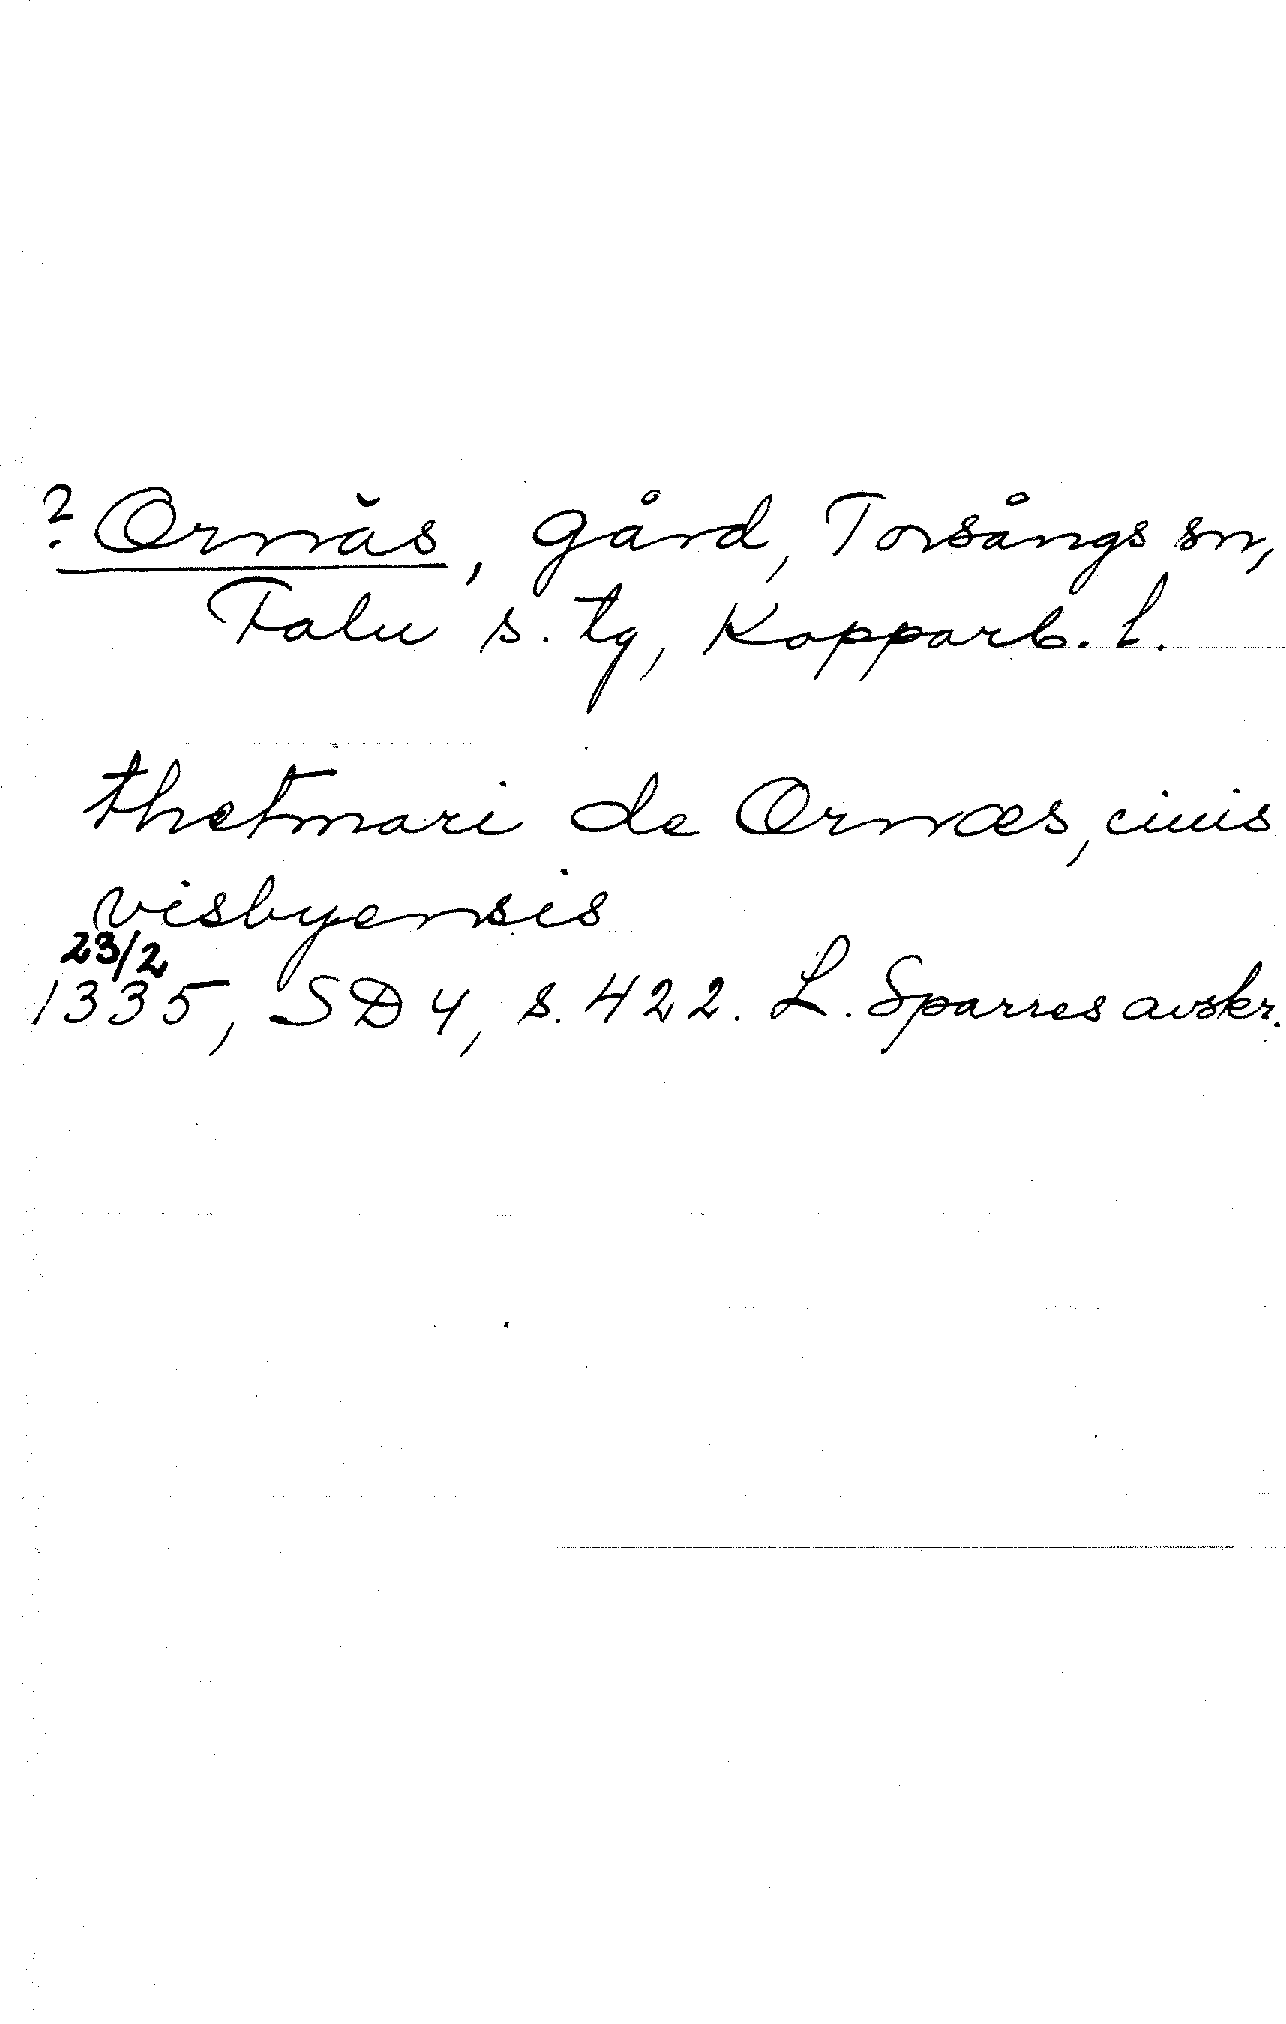 ? Ornäs, gård, Torsångs sn,
Falu s. tg, Kopparb. l.
thetmari de Ornæs, ciuis
visbyensis
23/2
1335, SD 4, s. 422. L. Sparres avskr.